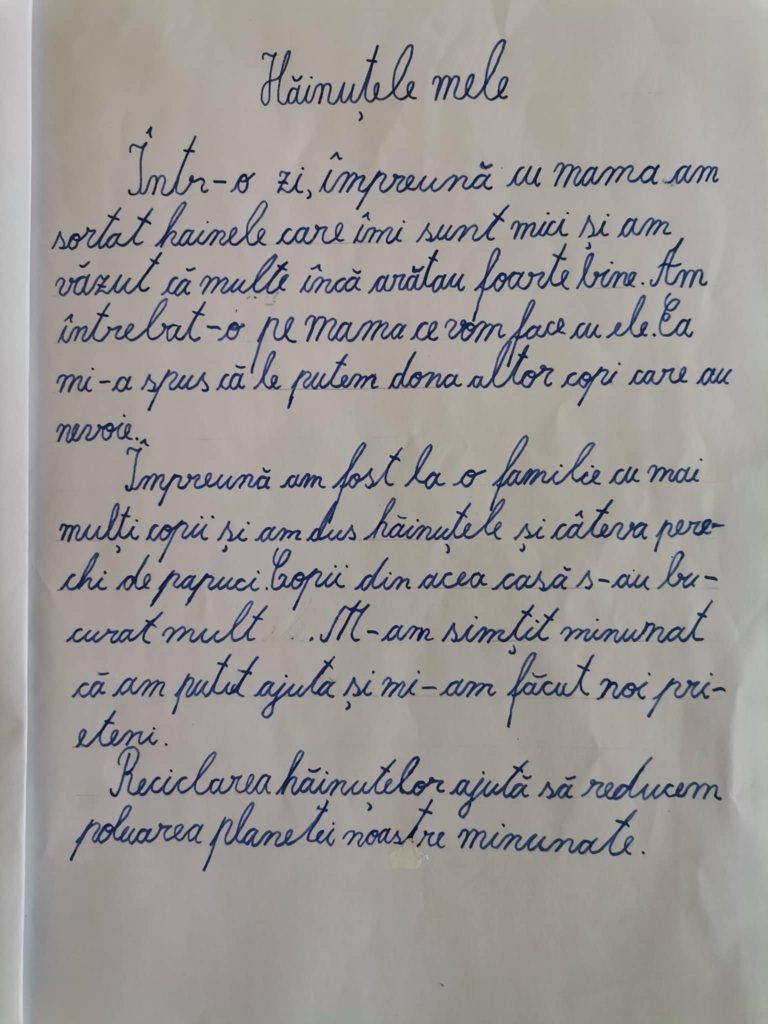 Hăinuțele mele
Într-o zi, împreună cu mama am
sortat hainele care îmi sunt mici și am
văzut că multe încă arătau foarte bine. Am
întrebat-o pe mama ce vom face cu ele. Ea
mi-a spus că le putem dona altor copi care au
nevoie.
Împreună am fost la o familie cu mai
mulți copii și am dus hăinuțele și câteva pere-
chi de papuci. Copii din acea casă s-au bu-
curat mult . M-am simțit minunat
că am putut ajuta și mi-am făcut noi pri-
eteni.
Reciclarea hăinuțelor ajută să reducem
poluarea planetei noastre minunate.